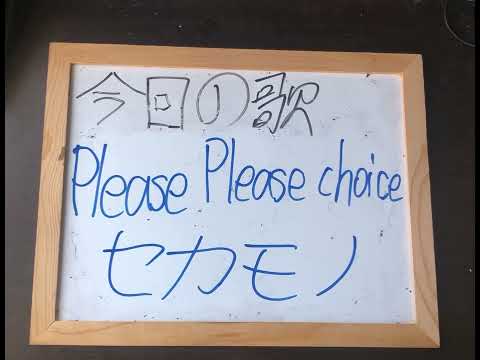 今回の歌
Please Please choice
セカモノ